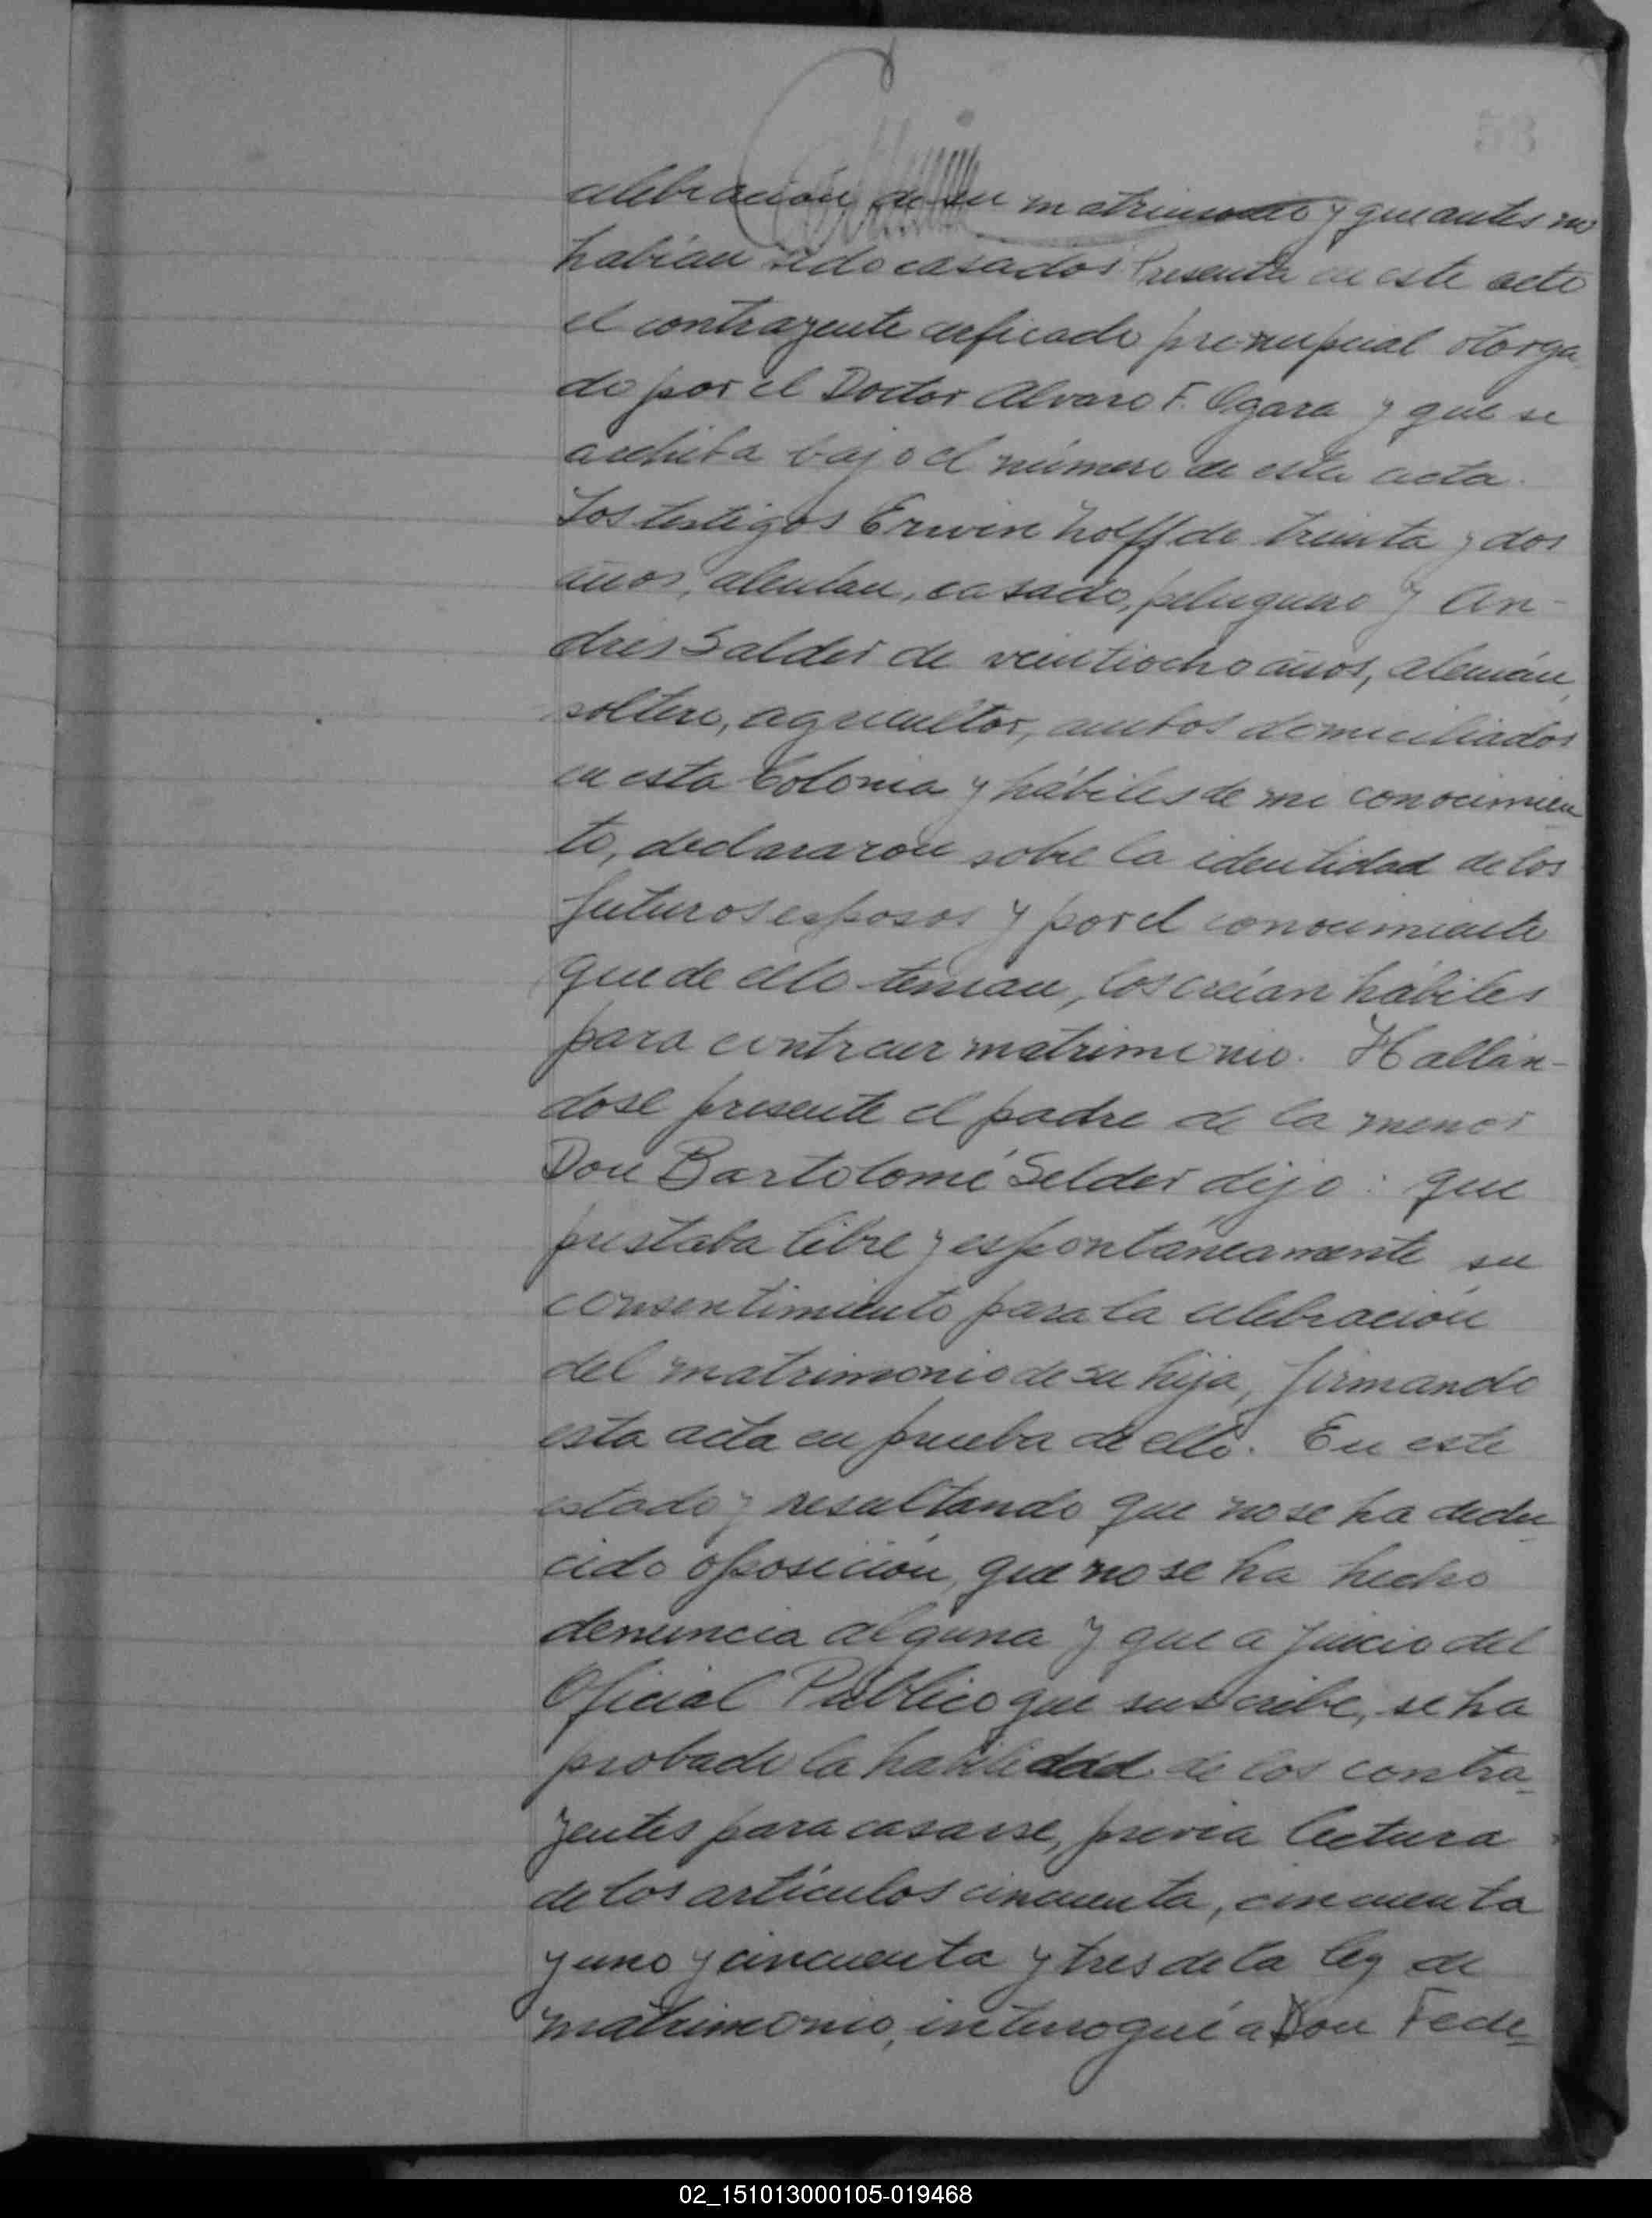 celebración de su matrimonio y que antes no
habían sido casados. Presenta en este acto
el contrayente cerficado prenupcial otorga
do por el Doctor Alvaro F. Ogara y que se
archiva bajo el número de esta acta.
Los testigos Erwin Wolff de treinta y dos
años, alemán, casado, peluquero y An-
drés Salder de veintiocho años, alemán,
soltero, agricultor, ambos domiciliados
en esta Colonia y hábiles de mi conocimien
to, declararon sobre la identidad de los
futuros esposos y por el conocimiento
que de ello tenían, los creían hábiles
para contraer matrimonio. Hallán-
dose presente el padre de la menor
Don Bartolomé Selder dijo: que
prestaba libre y espontáneamente su
consentimiento para la celebración
del matrimonio de su hija, firmando
esta acta en prueba de ello. En este
estado y resultando que no se ha dedu
cido oposición, que no se ha hecho
denuncia alguna y que a juicio del
Oficial Público que suscribe, se ha
probado la habilidad de los contra-
yentes para casarse, previa lectura
de los artículos cincuenta, cincuenta
y uno y cincuenta y tres de la ley de
matrimonio, interrogué a Don Fede-
02_151013000105-019468